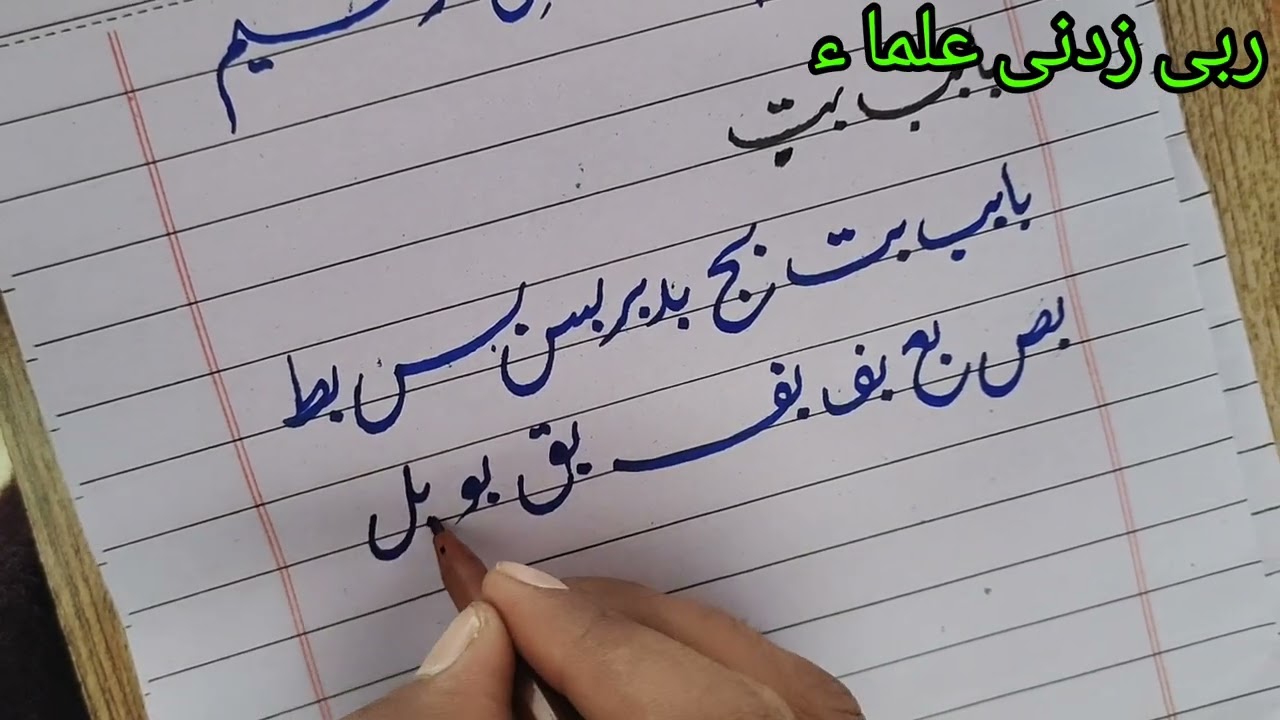 ربی زدنی علما ء
بب بپ
با بب بت بج بد بر بس بس بط
بص بع بف بف بق بو بل